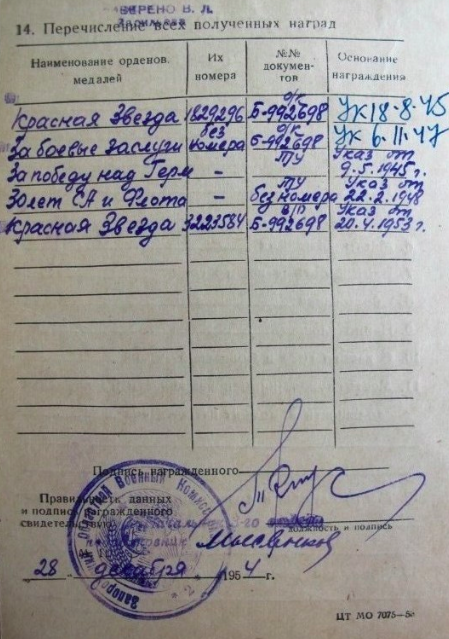 ВЕРЕНО В. Л.
14. Перечисление всех полученных наград
Наименование орденов, медалей Их номера №№ документов Основание награждения
Красная Звезда 1829296 о/к Б-992698 Ук 18-8-45
За боевые заслуги без номера о/к Б-992698 Ук 6.11.47
За победу над Герм – ТУ Указ от 9.5.1945 г.
30 лет СА и Флота – ТУ без номера Указ от 22.2.1948
Красная Звезда 3223584 в/п Б-992698 Указ от 20.4.1953 г.
Подпись награжденного
Правильность данных
и подпись награжденного
свидетельствую
должность и подпись
28 декабря 1954 г.
Областной Военный Комисс
ЦТ МО 7075-5